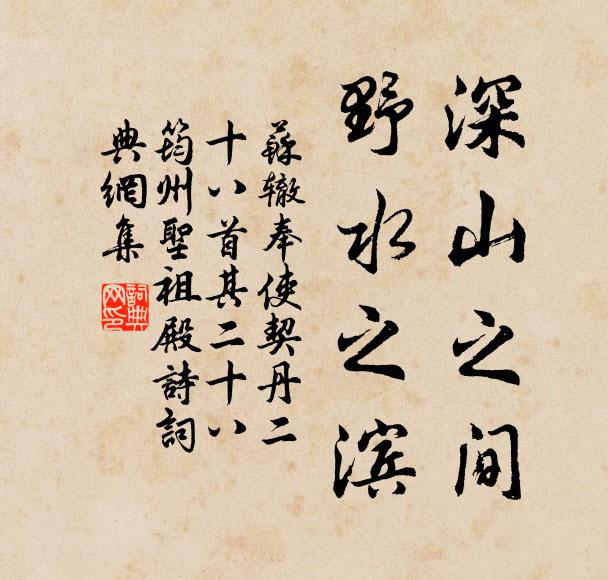 深山之间
野水之滨
蘇辙奉使契丹二
十八首其二十八
筠州聖祖殿詩詞
典網集
詞典
网印